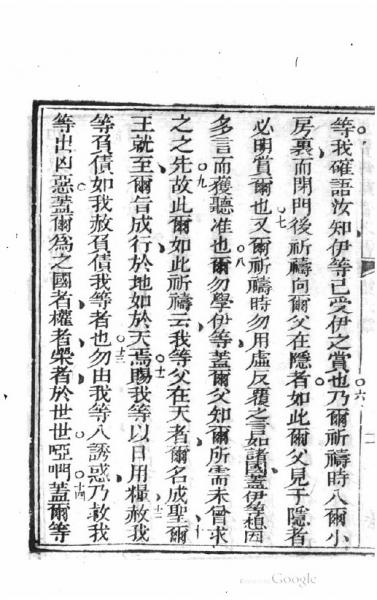 等我確語汝知伊等已受伊之賞也○六乃爾祈禱時入爾小
房裏而閉門後祈禱向爾父在隱者如此爾父見于隱者
必明賞爾也○七又爾祈禱時勿用虛反覆之言如諸國蓋伊等想因
多言而獲聽准也○八爾勿學伊等蓋爾父知爾所需未曾求
之之先○九故此爾如此祈禱云我等父在天者爾名成聖○十爾
王就至爾旨成行於地如於天焉○十一賜我等以日用糧○十二赦我
等負債如我赦負債我等者也○十三勿由我等入誘惑乃救我
等出凶惡蓋爾爲之國者權者榮者於世世啞們○十四蓋爾等
Google